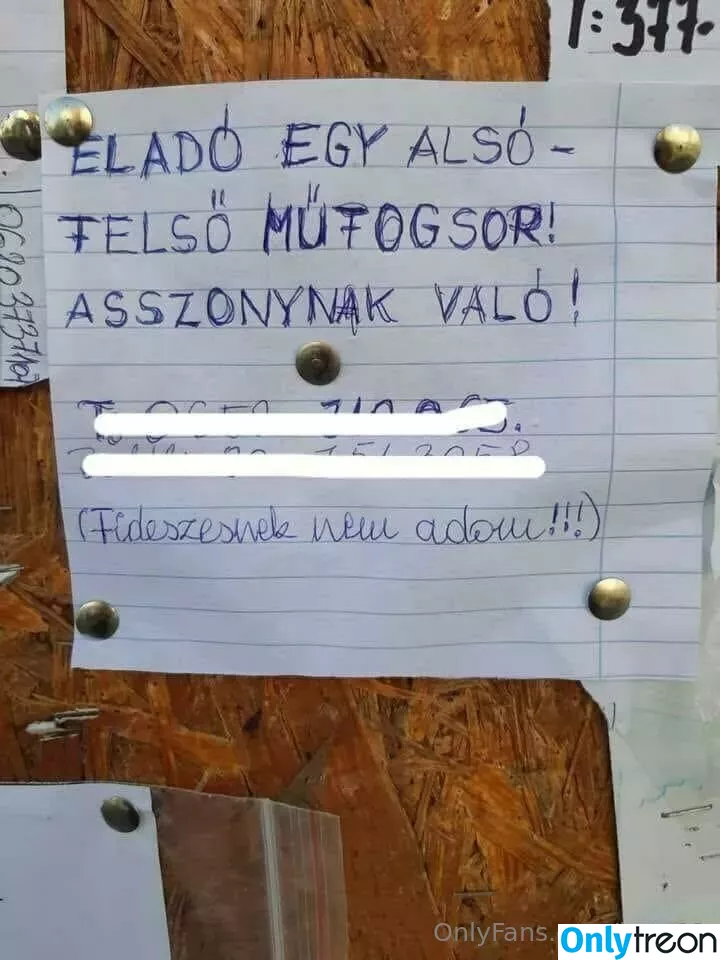 T: 377-
ELADÓ EGY ALSÓ-
FELSŐ MŰFOGSOR!
ASSZONYNAK VALÓ!
(Fideszesnek nem adom!!!)
OnlyFans.
Onlytreon